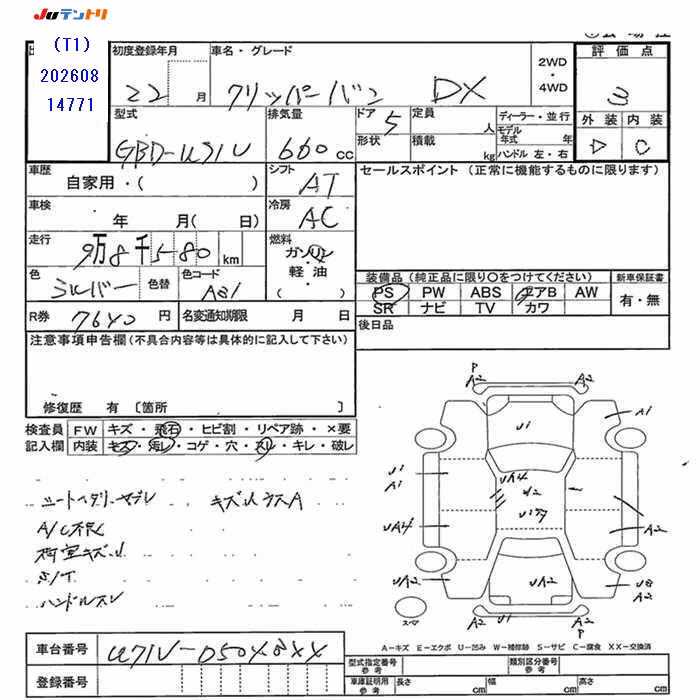 JUテントリ
(T1)
202608
14771
初度登録年月
22
月
車名・グレード
クリッパーバン DX
2WD
・
4WD
評価点
3
外装 内装
D C
型式
GBD-U71V
排気量
660 cc
ドア
5
形状
定員
人
積載
kg
ディーラー・並行
モデル
年式 年
ハンドル 左・右
車歴
自家用・( )
シフト
AT
セールスポイント (正常に機能するものに限ります)
車検
年 月( 日)
冷房
AC
走行
9万8千580 km
燃料
ガソリン
・
軽油
・
( )
色
シルバー
色替
色コード
A81
装備品(純正品に限り○をつけてください)
新車保証書
PS PW ABS エアB AW
有・無
SR ナビ TV カワ
R券
7640 円
名変通知期限 月 日
後日品
注意事項申告欄(不具合内容等は具体的に記入して下さい)
修復歴 有 〔箇所 〕
検査員
記入欄
FW キズ・飛石・ヒビ割・リペア跡・×要
内装 キズ・汚レ・コゲ・穴・スレ・キレ・破レ
A/C
荷室キズ
S/T
ハンドルスレ
P
A2 A2
A1
U1
U1
A1
UA4
UA4
A2
UA2
UA2
U2
A2
A2 A2
P U1
スペア
A-キズ E-エクボ U-凹み W-補修跡 S-サビ C-腐食 XX-交換済
車台番号
U71V-0504XXX
登録番号
型式指定番号
参考
類別区分番号
参考
車庫証明用
参考
長さ cm 幅 cm 高さ cm